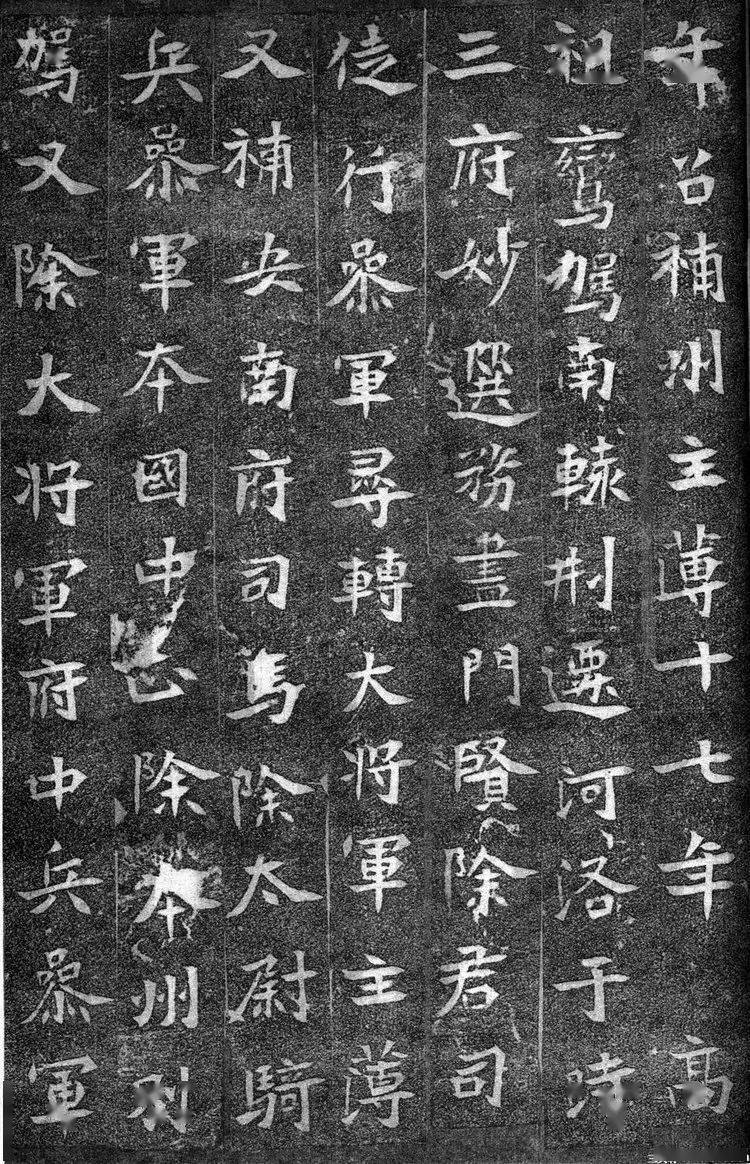 年召補州主薄十七年高
祖鸞駕南轅刱遷河洛于時
三府妙選務盡門賢除君司
徒行參軍尋轉大將軍主薄
又補安南府司馬除太尉騎
兵參軍本國中正除本州別
駕又除大將軍府中兵參軍